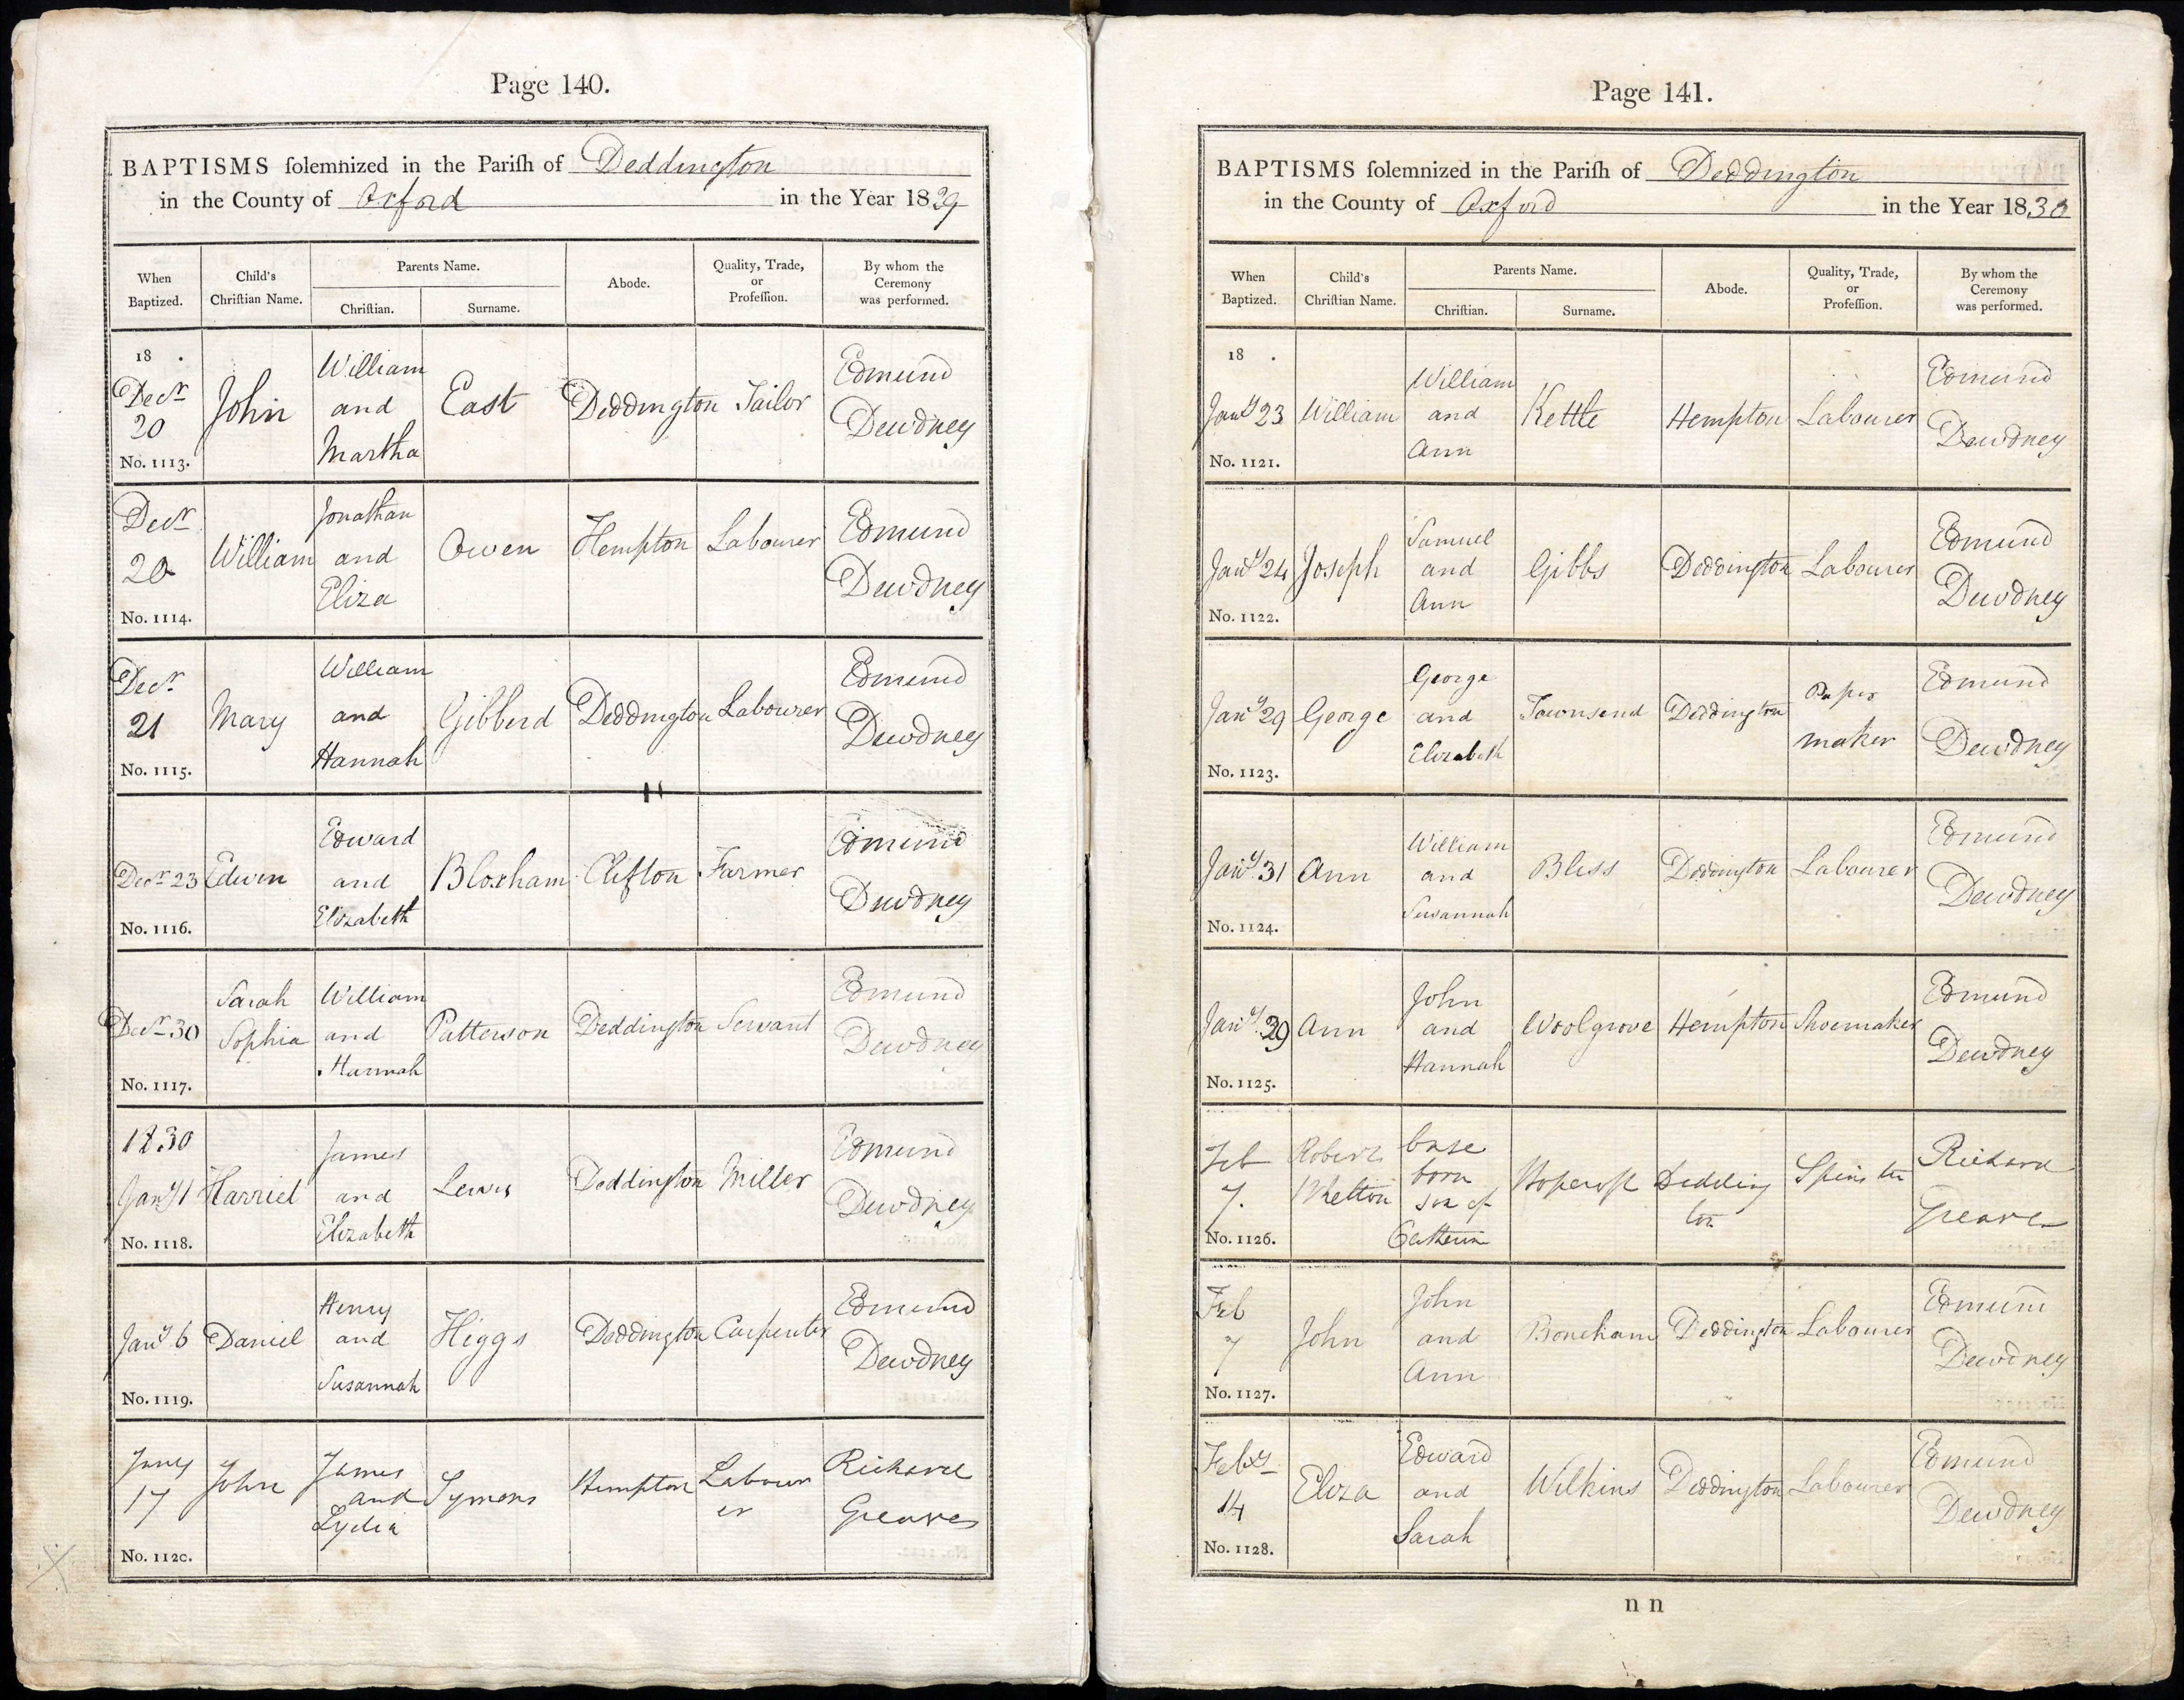 Page 140.
BAPTISMS ſolemnized in the Pariſh of Deddington
in the County of Oxford in the Year 1829
When
Baptized.
Child's
Chriſtian Name.
Parents Name.
Chriſtian.
Surname.
Abode.
Quality, Trade,
or
Profeſſion.
By whom the
Ceremony
was performed.
18 .
Decr
20
No. 1113.
John
William
and
Martha
East
Deddington
Tailor
Edmund
Dewdney
Decr
20
No. 1114.
William
Jonathan
and
Eliza
Owen
Hempton
Labourer
Edmund
Dewdney
Decr
21
No. 1115.
Mary
William
and
Hannah
Gibberd
Deddington
Labourer
Edmund
Dewdney
Decr 23
No. 1116.
Edwin
Edward
and
Elizabeth
Bloxham
Clifton
Farmer
Edmund
Dewdney
Decr 30
No. 1117.
Sarah
Sophia
William
and
Hannah
Patterson
Deddington
Servant
Edmund
Dewdney
1830
Jany 1
No. 1118.
Harriet
James
and
Elizabeth
Lewis
Deddington
Miller
Edmund
Dewdney
Jany 6
No. 1119.
Daniel
Henry
and
Susannah
Higgs
Deddington
Carpenter
Edmund
Dewdney
Jany
17
No. 1120.
John
James
and
Lydia
Symons
Hempton
Labour
er
Richard
Greaves
Page 141.
BAPTISMS ſolemnized in the Pariſh of Deddington
in the County of Oxford in the Year 1830
When
Baptized.
Child's
Chriſtian Name.
Parents Name.
Chriſtian.
Surname.
Abode.
Quality, Trade,
or
Profeſſion.
By whom the
Ceremony
was performed.
18 .
Jany 23
No. 1121.
William
William
and
Ann
Kettle
Hempton
Labourer
Edmund
Dewdney
Jany 24
No. 1122.
Joseph
Samuel
and
Ann
Gibbs
Deddington
Labourer
Edmund
Dewdney
Jany 29
No. 1123.
George
George
and
Elizabeth
Townsend
Deddington
Paper
maker
Edmund
Dewdney
Jany 31
No. 1124.
Ann
William
and
Susannah
Bliss
Deddington
Labourer
Edmund
Dewdney
Jany 29
No. 1125.
Ann
John
and
Hannah
Woolgrove
Hempton
Shoemaker
Edmund
Dewdney
Feb
7.
No. 1126.
Robert
Whetton
base
born
son of
Catherine
Hopcroft
Dedding
ton
Spinster
Richard
Greaves
Feb
7
No. 1127.
John
John
and
Ann
Boneham
Deddington
Labourer
Edmund
Dewdney
Feby
14
No. 1128.
Eliza
Edward
and
Sarah
Wilkins
Deddington
Labourer
Edmund
Dewdney
n n